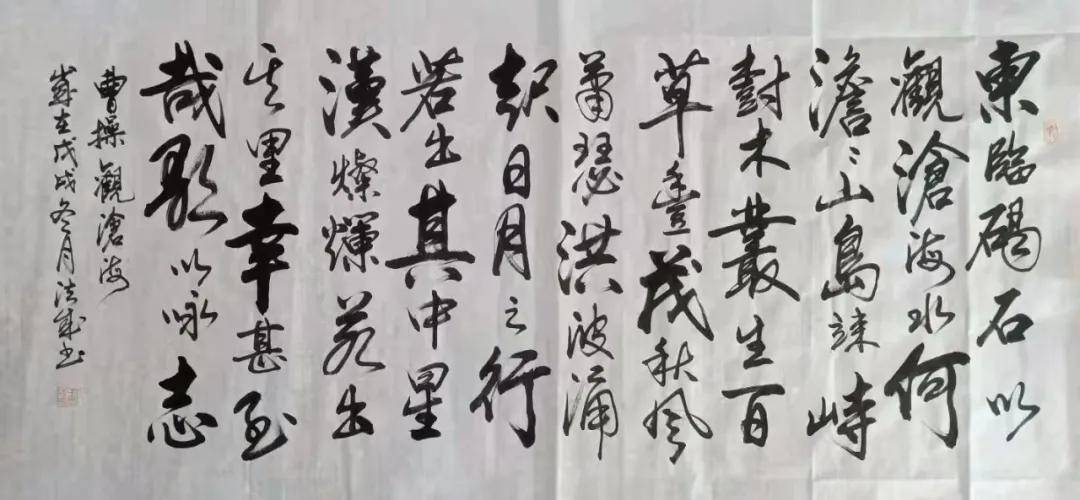 東臨碣石以
觀滄海水何
澹〻山島竦峙
樹木叢生百
草豐茂秋風
蕭瑟洪波涌
起日月之行
若出其中星
漢燦爛若出
其里幸甚至
哉歌以咏志
曹操觀滄海
歲在戊戌冬月成书